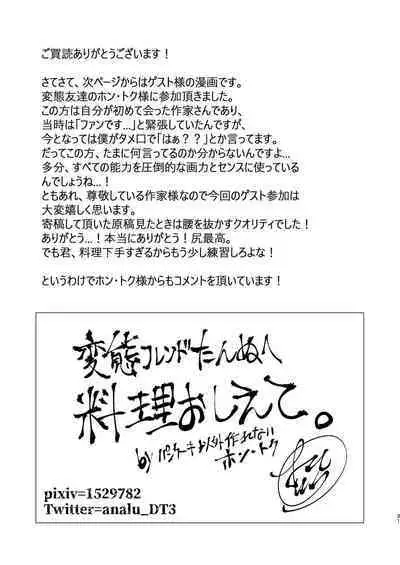 ご買読ありがとうございます！
さてさて、次ページからはゲスト様の漫画です。
変態友達のホン・トク様に参加頂きました。
この方は自分が初めて会った作家さんであり、
当時は「ファンです…」と緊張していたんですが、
今となっては僕がタメ口で「はぁ？？」とか言ってます。
だってこの方、たまに何言ってるのか分からないんですよ…
多分、すべての能力を圧倒的な画力とセンスに使っている
んでしょうね…！
ともあれ、尊敬している作家様なので今回のゲスト参加は
大変嬉しく思います。
寄稿して頂いた原稿見たときは腰を抜かすクオリティでした！
ありがとう…！本当にありがとう！尻最高。
でも君、料理下手すぎるからもう少し練習しろよな！
というわけでホン・トク様からもコメントを頂いています！
変態フレンドたんぬへ
料理おしえて。
by パンケーキ以外作れない
ホン・トク
pixiv=1529782
Twitter=analu_DT3
31